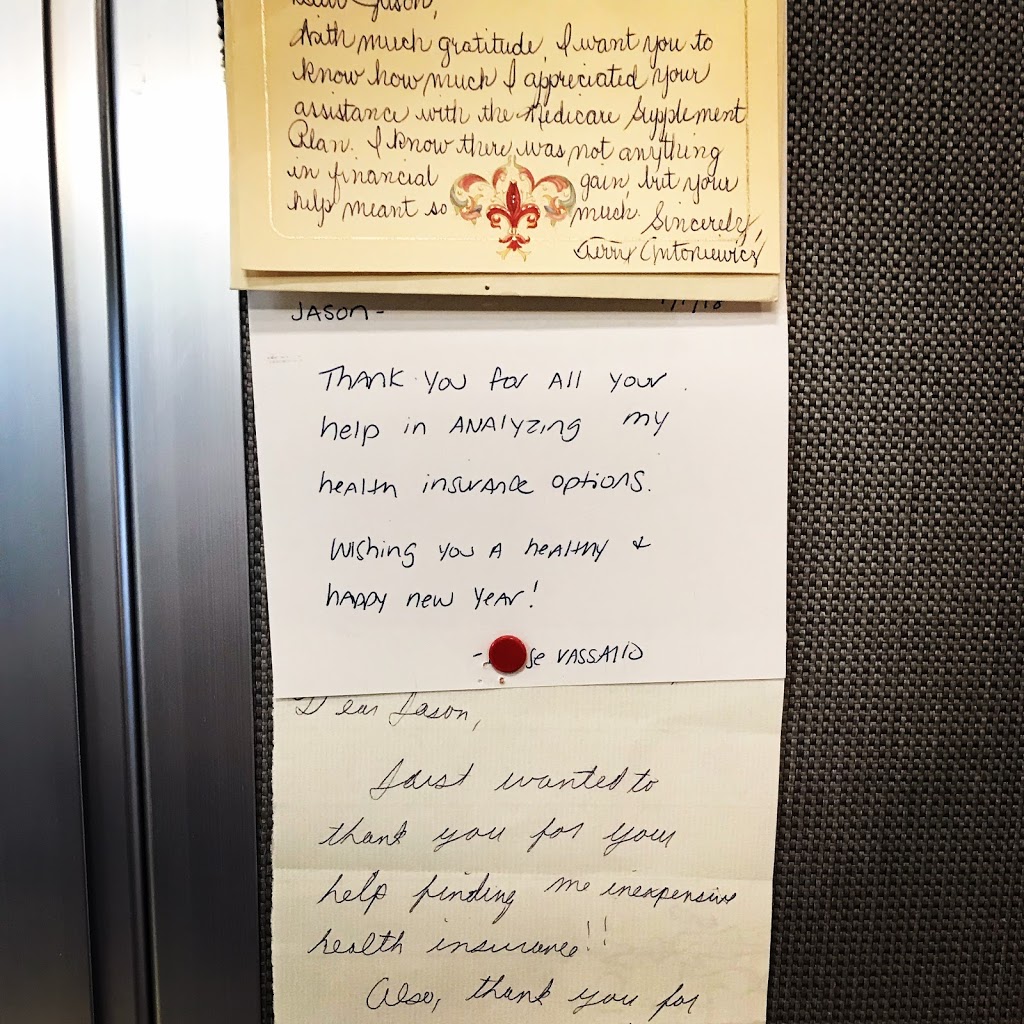 Dear Jason,
With much gratitude, I want you to
know how much I appreciated your
assistance with the Medicare Supplement
Plan. I know there was not anything
in financial gain but your
help meant so much. Sincerely,
Antoniewicz
JASON-
THANK YOU for All your
help in ANAlyzing my
heAlth insurANce options.
Wishing you A heAlthy &
hAppy new YeAr!
VASSAllo
Dear Jason,
I just wanted to
thank you for your
help finding me inexpensive
health insurance!!
Also, thank you for